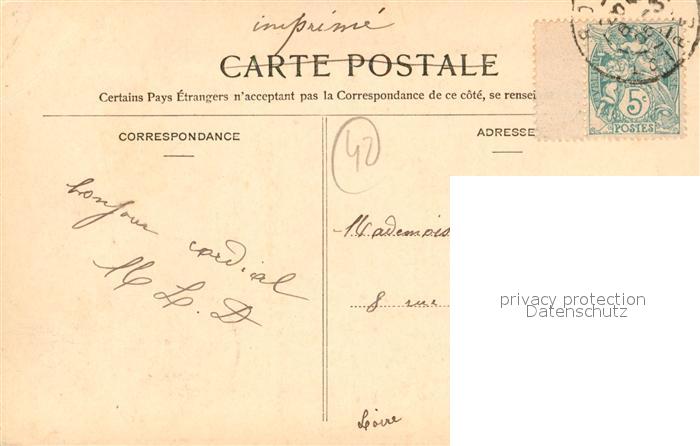 imprimé
CARTE POSTALE
Certains Pays Étrangers n'acceptant pas la Correspondance de ce côté, se rensei
CORRESPONDANCE
ADRESSE
5c
POSTES
42
bonjour cordial
M L. D
Mademois
8 rue
Loire
privacy protection
Datenschutz